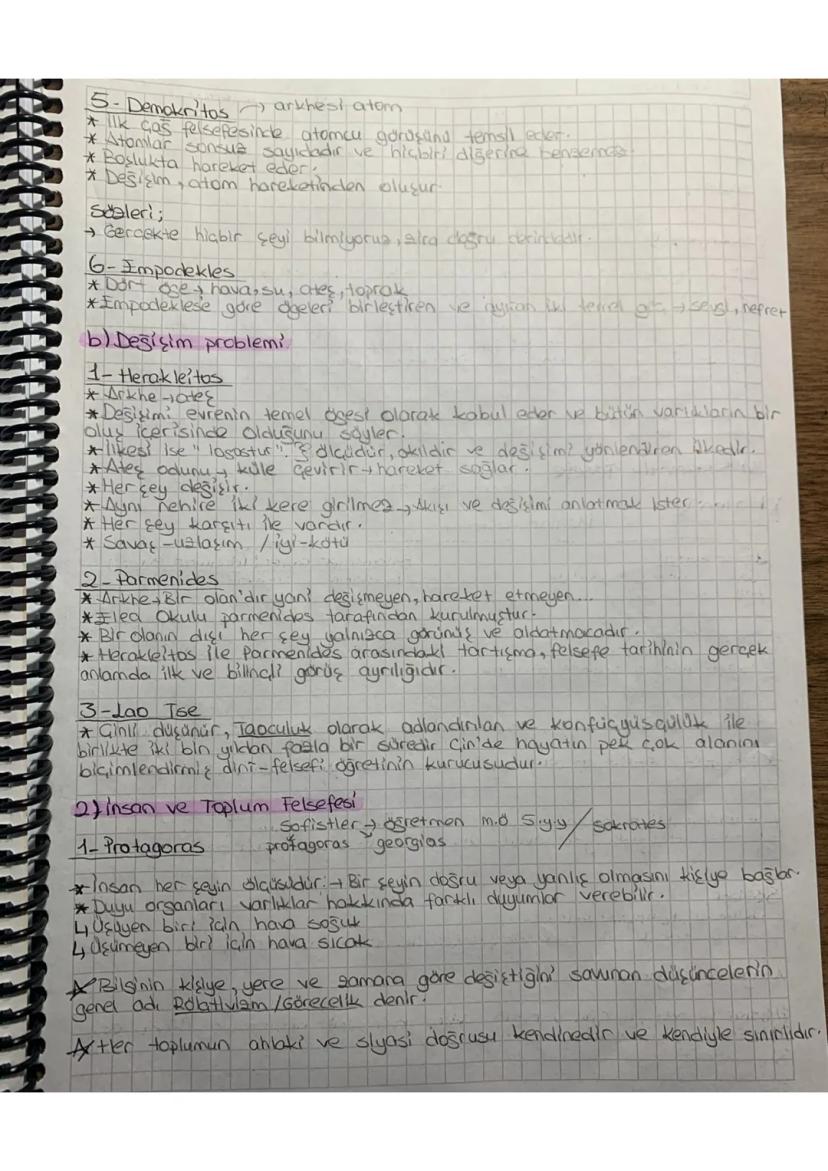 5- Demokritos → arkhesi atom
* İlk Çağ felsefesinde atomcu görüşünü temsil eder.
* Atomlar sonsuz sayıdadır ve hiçbiri diğerine benzemez.
* Boşlukta hareket eder.
* Değişim, atom hareketinden oluşur.
Sözleri;
→ Gerçekte hiçbir şeyi bilmiyoruz, zira doğru derindedir.
6- Empodekles
* Dört öge → hava, su, ateş, toprak
* Empodeklese göre ögeleri birleştiren ve ayıran iki temel güç → sevgi, nefret
b) Değişim problemi
1- Herakleitos
* Arkhe → ateş
* Değişimi evrenin temel ögesi olarak kabul eder ve bütün varlıkların bir
oluş içerisinde olduğunu söyler.
* İlkesi ise "logostur". ölçüdür, akıldır ve değişimi yönlendiren ilkedir.
* Ateş odunu → küle çevirir → hareket sağlar.
* Her şey değişir.
* Aynı nehire iki kere girilmez → Akışı ve değişimi anlatmak ister.
* Her şey karşıtı ile vardır.
* Savaş - uzlaşım / iyi-kötü
2- Parmenides
* Arkhe → Bir olan'dır yani değişmeyen, hareket etmeyen...
* Elea Okulu parmenides tarafından kurulmuştur.
* Bir olanın dışı her şey yalnızca görünüş ve aldatmacadır.
* Herakleitos ile Parmenides arasındaki tartışma, felsefe tarihinin gerçek
anlamda ilk ve bilinçli görüş ayrılığıdır.
3- Lao Tse
* Çinli düşünür, Taoculuk olarak adlandırılan ve konfüçyüsçülük ile
birlikte iki bin yıldan fazla bir süredir Çin'de hayatın pek çok alanını
biçimlendirmiş dini-felsefi öğretinin kurucusudur.
2) İnsan ve Toplum Felsefesi
Sofistler → öğretmen m.ö 5.yy / sokrates
1- Protagoras protagoras georgias
* İnsan her şeyin ölçüsüdür. → Bir şeyin doğru veya yanlış olmasını kişiye bağlar.
* Duyu organları varlıklar hakkında farklı duyumlar verebilir.
↳ Üşüyen biri için hava soğuk
↳ Üşümeyen biri için hava sıcak
* Bilginin kişiye, yere ve zamana göre değiştiğini savunan düşüncelerin
genel adı Rölativizm / Görecelik denir.
* Her toplumun ahlaki ve siyasi doğrusu kendinedir ve kendiyle sınırlıdır.